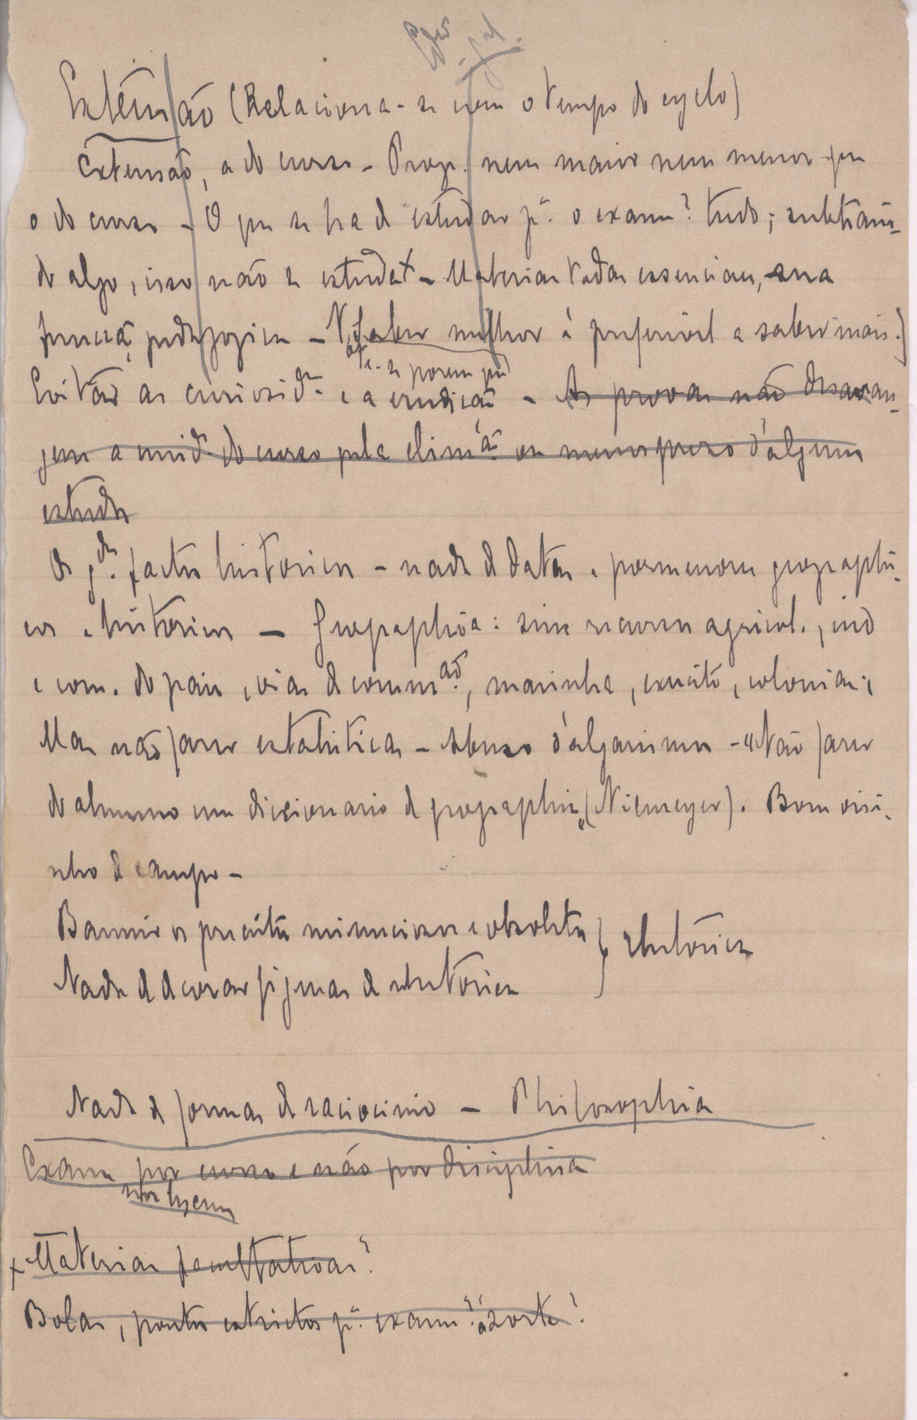 Extensão (Relaciona-se com o tempo do cyclo)
Extensão, a do curso - Prog. nem maior nem menor que
o do curso - O que se ha de estudar pª o exame? tudo; subtrain-
do algo, isso não se estuda - Materias todas essenciaes, sua
funcção pedagogica - Saber melhor é preferivel a saber mais.
Evitar as curiosid.es e a erudição - As provas não desvan-
gem a unid.e do curso pela elimão ou menospreso d'algum
estudo
Os g.des factos historicos - nada de datas e pormenores geographi-
cos e historicos - Geographia: sim recursos agricol., ind
e com. do paiz, vias de commão, marinha, exercito, colonias;
Mas não fazer estatisticas - Abuso d'algarismos - "Não fazer
do alumno um diccionario de geographia" (Niemeyer). Bom visi-
nho de campo -
Bannir os preceitos minuciosos e obsoletos } rhetorica
Nada de decorar figuras de rhetorica
Nada de formas de raciocinio - Philosophia
Exame por curso e não por disciplina
nos lyceus
x Materias facultativas?
Bolas, pontos estrictos pª exame? á sorte?